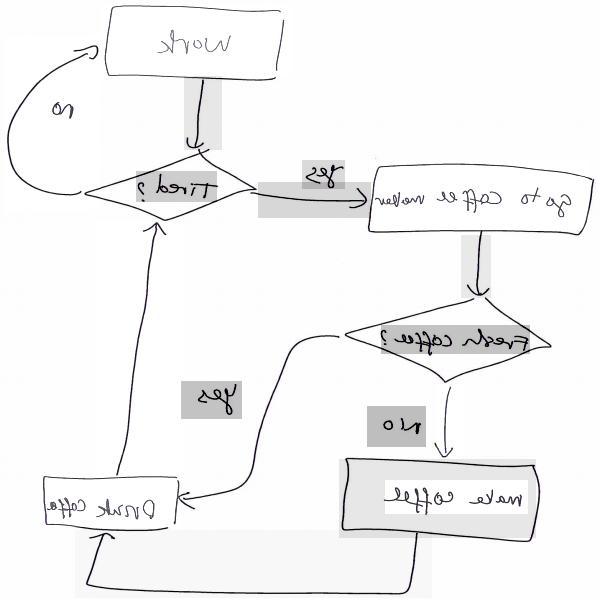 work
no
Tired?
yes
Go to coffee maker
Fresh coffee?
yes
NO
make coffee
Drink coffe